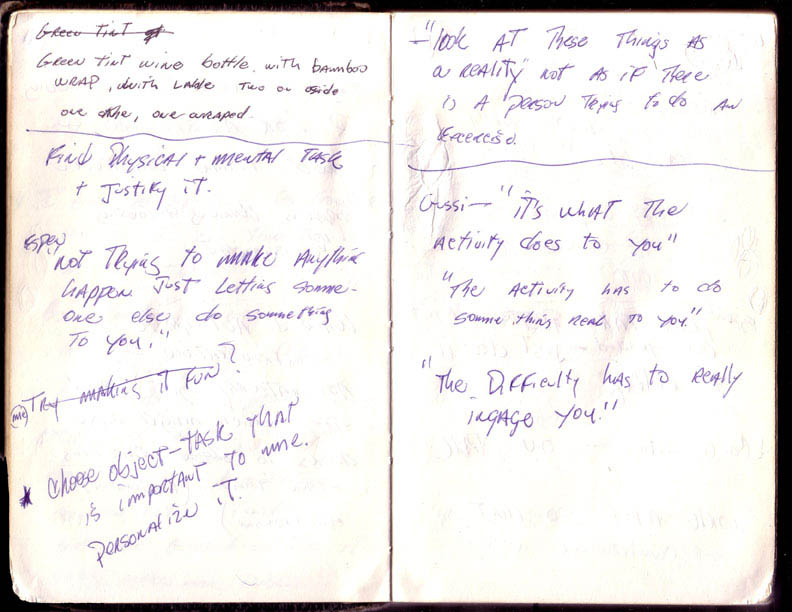 Green Tint
Green Tint wine bottle with bamboo
wrap, with Lable Two on side
one, one wraped.
Find Physical + mental Task
+ Justify it.
not Trying to make Anything
happen Just Letting somme-
one else do sommething
To you."
(me) Try making it fun?
* choose object-task that
is important to mme.
Personalize it.
-"look AT These Things as
a reality" not as if There
is A person Trying to do an
Exercise.
Gussi- "it's what The
Activity does to you"
"The Activity has to do
somme thing real to you."
"The Difficulty has to really
ingage you."